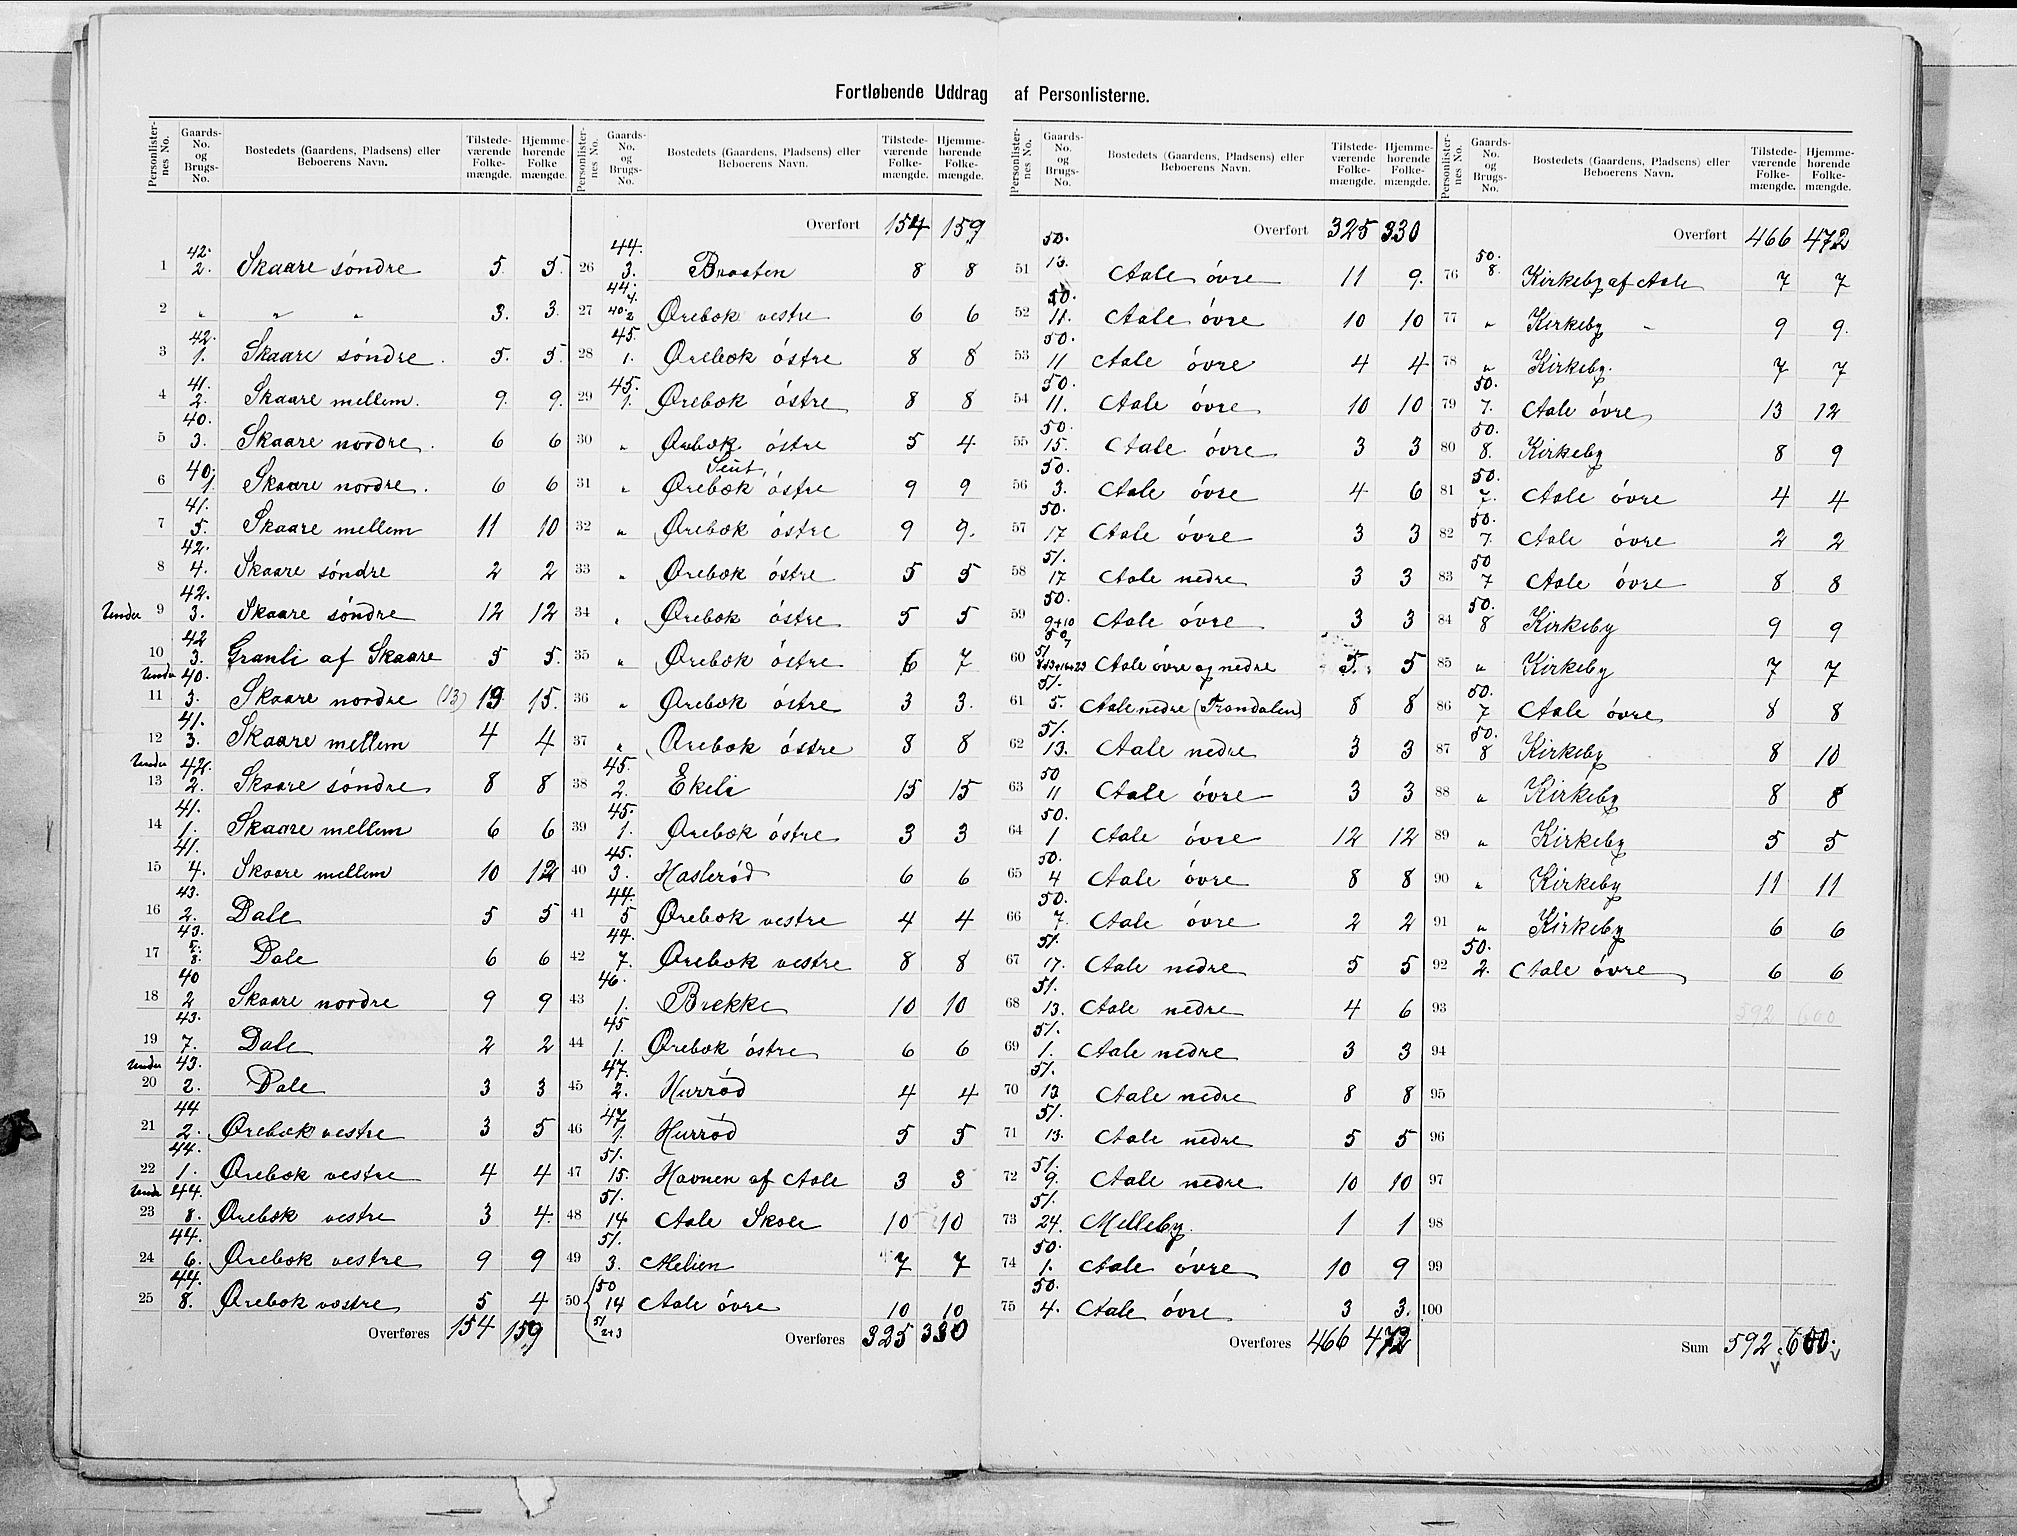 Fortløbende Uddrag af Personlisterne.
Personlister-nes No. Gaards-No. og Brugs-No. Bostedets (Gaardens, Pladsens) eller Beboerens Navn. Tilstede-værende Folke-mængde. Hjemme-hørende Folke mængde.
1 42. 2. Skaare söndre 5. 5.
2 „ „ „ 3. 3.
3 42. 1. Skaare söndre. 5. 5.
4 41. 2. Skaare mellem. 9. 9.
5 40. 3. Skaare nordre. 6 6
6 40. 1. Skaare nordre. 6 6
7 41. 5. Skaare mellem 11 10
8 42. 4. Skaare söndre 2 2
Under 9 42. 3. Skaare söndre 12 12
10 42 3. Granli af Skaare 5 5.
Under 11 40. 3. Skaare nordre (13) 13 15.
12 41. 3. Skaare mellem 4 4
Under 13 42. 2. Skaare söndre 8 8
14 41. 1. Skaare mellem 6 6
15 41. 4. Skaare mellem 10 12
16 43. 2. Dale 5 5
17 43. 5. 8. Dale 6 6
18 40 2 Skaare nordre 9 9
19 43. 7. Dale 2 2
Under 20 43. 2. Dale 3 3
21 44 2. Örebæk vestre 3 5
22 44. 1. Örebæk vestre 4 4
Under 23 44. 8. Örebæk vestre 3 4
24 44. 6. Örebæk vestre 9 9
25 44. 8. Örebæk vestre 5 4
Overføres 154 159
Personlister-nes No. Gaards-No. og Brugs-No. Bostedets (Gaardens, Pladsens) eller Beboerens Navn. Tilstede-værende Folke-mængde. Hjemme-hørende Folke-mængde.
Overført 154 159
26 44. 3. Braaten 8 8
27 44. 4. 40. 2 Örebæk vestre 6 6
28 45. 1. Örebæk östre 8 8
29 45. 1. Örebæk östre 8 8
30 „ Örebæk östre 5 4
31 „ Örebæk östre 9 9
32 „ Örebæk östre 9 9.
33 „ Örebæk östre 5 5
34 „ Örebæk östre 5 5
35 „ Örebæk östre 6 7
36 „ Örebæk östre 3 3.
37 „ Örebæk östre 8 8
38 45. 2. Ekeli 15 15
39 45. 1. Örebæk östre 3 3
40 45. 3. Hasleröd 6 6
41 44. 5 Örebæk vestre 4 4
42 44. 7. Örebæk vestre 8 8
43 46. 1. Brekke 10 10
44 45 1. Örebæk östre 6 6
45 47. 2. Hurröd 4 4
46 47. 1. Hurröd 5 5
47 51. 15. Havnen af Aale 3 3
48 51. 14 Aale Skole 10 10
49 51. 3. Melien 7 7
50 50 14 51 2+3 Aale övre 10 10
Overføres 325 330
Personlister-nes No. Gaards-No. og Brugs-No. Bostedets (Gaardens, Pladsens) eller Beboerens Navn. Tilstede-værende Folke-mængde. Hjemme-hørende Folke-mængde.
Overført 325 330
51 50. 13. Aale övre 11 9.
52 50. 11. Aale övre 10 10
53 50. 11 Aale övre 4 4
54 50. 11. Aale övre 10 10
55 50. 15. Aale övre 3 3
56 50. 3. Aale övre 4 6
57 50. 17 Aale övre 3 3
58 51. 17 Aale nedre 3 3
59 50. 9+10 Aale övre 3 3
60 Aale övre og nedre 5. 5
61 51. 5. Aale nedre (Trondalen) 8 8
62 51. 13. Aale nedre 3 3
63 50 11 Aale övre 3 3
64 50. 1 Aale övre 12 12
65 50. 4 Aale övre 8 8
66 50. 7. Aale övre 2 2
67 51. 17. Aale nedre 5 5
68 51. 13. Aale nedre 4 6
69 51. 1. Aale nedre 3 3
70 51. 13 Aale nedre 8 8
71 51. 13. Aale nedre 5 5
72 51. 9. Aale nedre 10 10
73 51. 24. Melleby. 1 1
74 50. 1. Aale övre 10 9
75 50. 4. Aale övre 3 3.
Overføres 466 472
Personlister-nes No. Gaards-No. og Brugs-No. Bostedets (Gaardens, Pladsens) eller Beboerens Navn. Tilstede-værende Folke-mængde. Hjemme-hørende Folke-mængde.
Overført 466 472
76 50. 8. Kirkeby af Aale 7 7
77 „ Kirkeby 9 9.
78 „ Kirkeby. 7 7
79 50. 7. Aale övre 13 12
80 50. 8. Kirkeby 8 9
81 50. 7. Aale övre 4 4
82 50. 7. Aale övre 2 2
83 50 7 Aale övre 8 8
84 50. 8 Kirkeby 9 9
85 „ Kirkeby 7 7
86 50. 7 Aale övre 8 8
87 50. 8 Kirkeby 8 10
88 „ Kirkeby 8 8
89 „ Kirkeby 5 5
90 „ Kirkeby 11 11
91 „ Kirkeby 6 6
92 50. 2. Aale övre 6 6
93 592 600
94
95
96
97
98
99
100
Sum 592 600.